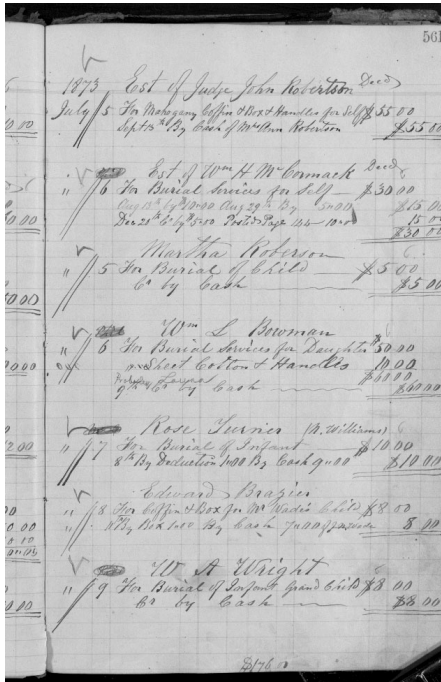 561
1873 Est of Judge John Robertson Decd
July 5 For Mahogany Coffin & Box & Handles for Self $55 00
Sept 13th By Cash of Robertson $55 00
Est of Wm H McCormack Decd
" 6 For Burial Services for Self $30 00
Aug 13th by $10.00 Aug 29th By 5.00 $15 00
Dec 20th Cr by $5.00 Posted Page 144 10.00 15 00
$30 00
Martha Roberson
" 5 For Burial of Child $5 00
Cr by Cash $5 00
Wm L Bowman
" 6 For Burial Services for Daughter $50 00
" Sheet Cotton & Handles 10 00
$60 00
9th Cr by Cash $60 00
Rose Turner (R. Williams)
" 7 For Burial of Infant $10 00
8th By Deduction 1.00 By Cash 9.00 $10 00
Edward Brazier
" 8 For Coffin & Box for Mr Wade's Child $8 00
" By Box 1.00 By Cash 7.00 8 00
W A Wright
" 9 For Burial of Infant Grand Child $8 00
Cr by Cash $8 00
$176 00